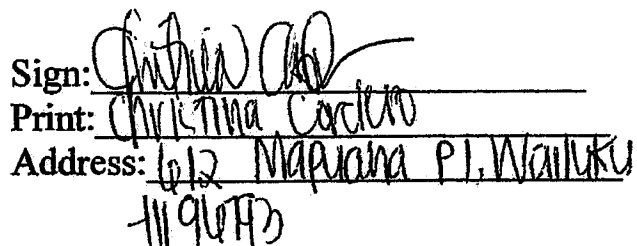 Sign:
Print: Christina Cordero
Address: 612 Mapuana Pl. Wailuku
HI 96793